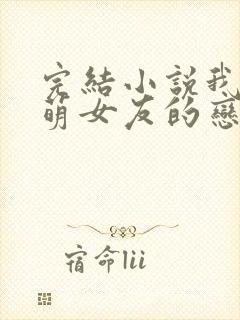 完結小說我
萌女友的戀
宿命lii